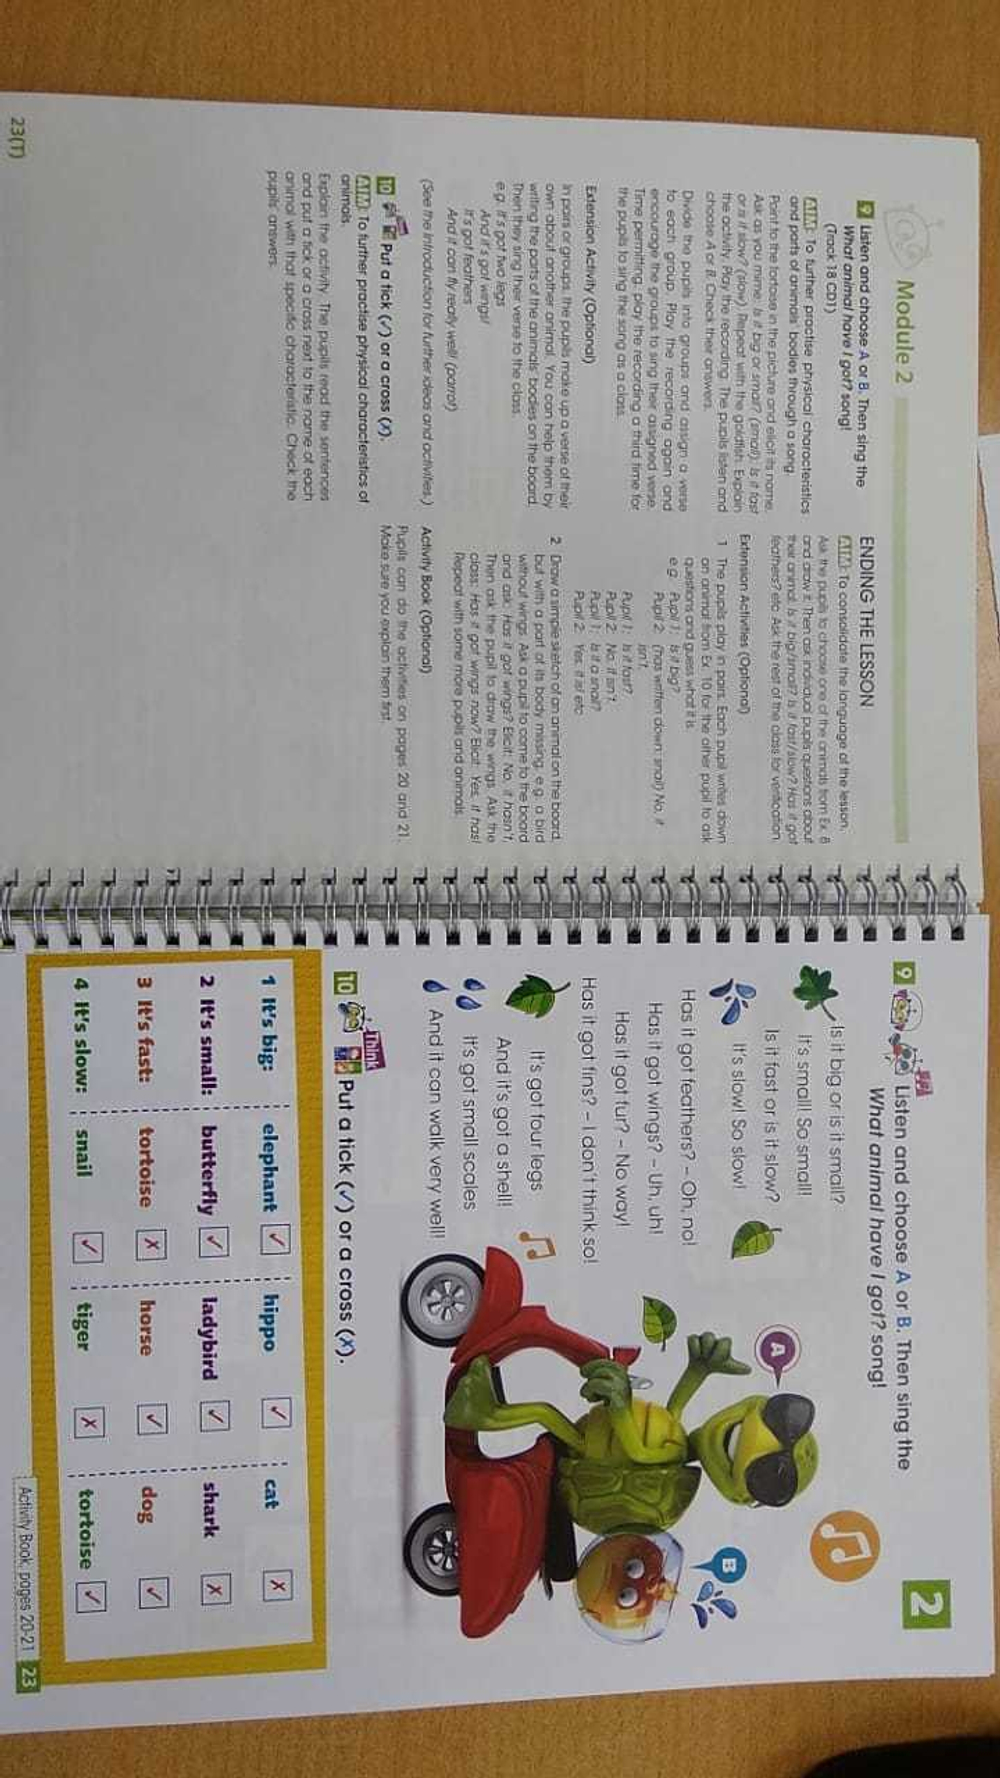 Module 2
9 Listen and choose A or B. Then sing the
What animal have I got? song!
(Track 18 CD1)
AIM: To further practise physical characteristics
and parts of animals' bodies through a song.
Point to the tortoise in the picture and elicit its name.
Ask as you mime: Is it big or small? (small) Is it fast
or is it slow? (slow) Repeat with the goldfish. Explain
the activity. Play the recording. The pupils listen and
choose A or B. Check their answers.
Divide the pupils into groups and assign a verse
to each group. Play the recording again and
encourage the groups to sing their assigned verse.
Time permitting, play the recording a third time for
the pupils to sing the song as a class.
Extension Activity (Optional)
In pairs or groups, the pupils make up a verse of their
own about another animal. You can help them by
writing the parts of the animals' bodies on the board.
Then they sing their verse to the class.
e.g. It's got two legs
And it's got wings!
It's got feathers
And it can fly really well! (parrot)
(See the Introduction for further ideas and activities.)
10 Put a tick (✓) or a cross (✗).
AIM: To further practise physical characteristics of
animals.
Explain the activity. The pupils read the sentences
and put a tick or a cross next to the name of each
animal with that specific characteristic. Check the
pupils' answers.
ENDING THE LESSON
AIM: To consolidate the language of the lesson.
Ask the pupils to choose one of the animals from Ex. 8
and draw it. Then ask individual pupils questions about
their animal: Is it big/small? Is it fast/slow? Has it got
feathers? etc Ask the rest of the class for verification.
Extension Activities (Optional)
1 The pupils play in pairs. Each pupil writes down
an animal from Ex. 10 for the other pupil to ask
questions and guess what it is.
e.g. Pupil 1: Is it big?
Pupil 2: (has written down: snail) No, it
isn't.
Pupil 1: Is it fast?
Pupil 2: No, it isn't.
Pupil 1: Is it a snail?
Pupil 2: Yes, it is! etc
2 Draw a simple sketch of an animal on the board,
but with a part of its body missing, e.g. a bird
without wings. Ask a pupil to come to the board
and ask: Has it got wings? Elicit: No, it hasn't.
Then ask the pupil to draw the wings. Ask the
class: Has it got wings now? Elicit: Yes, it has!
Repeat with some more pupils and animals.
Activity Book (Optional)
Pupils can do the activities on pages 20 and 21.
Make sure you explain them first.
23(T)
2
9 Listen and choose A or B. Then sing the
What animal have I got? song!
Is it big or is it small?
It's small! So small!
Is it fast or is it slow?
It's slow! So slow!
Has it got feathers? – Oh, no!
Has it got wings? – Uh, uh!
Has it got fur? – No way!
Has it got fins? – I don't think so!
It's got four legs
And it's got a shell!
It's got small scales
And it can walk very well!
A
B
10 Think Put a tick (✓) or a cross (✗).
1 It's big: elephant ✓ hippo ✓ cat ✗
2 It's small: butterfly ✓ ladybird ✓ shark ✗
3 It's fast: tortoise ✗ horse ✓ dog ✓
4 It's slow: snail ✓ tiger ✗ tortoise ✓
Activity Book: pages 20-21 23